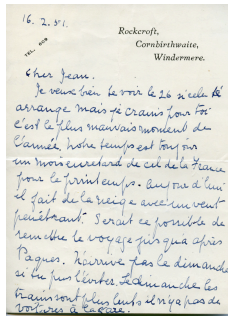 16.2.51.
Rockcroft,
Cornbirthwaite,
Windermere.
TEL. 609
Cher Jean.
Je veux bien te voir le 26 si cela t'
arrange mais je crains pour toi
c'est le plus mauvais moment de
l'année. Notre temps est toujours
un mois en retard de cel de la France
pour le printemps. Aujourd'hui
il fait de la neige avec un vent
pénétrant. Serait ce possible de
remettre le voyage jusqu'a après
Paques. N'arrive pas le dimanche
si tu peux l'éviter. Le dimanche les
trains sont plus lents il n'y a pas de
voitures à la gare.